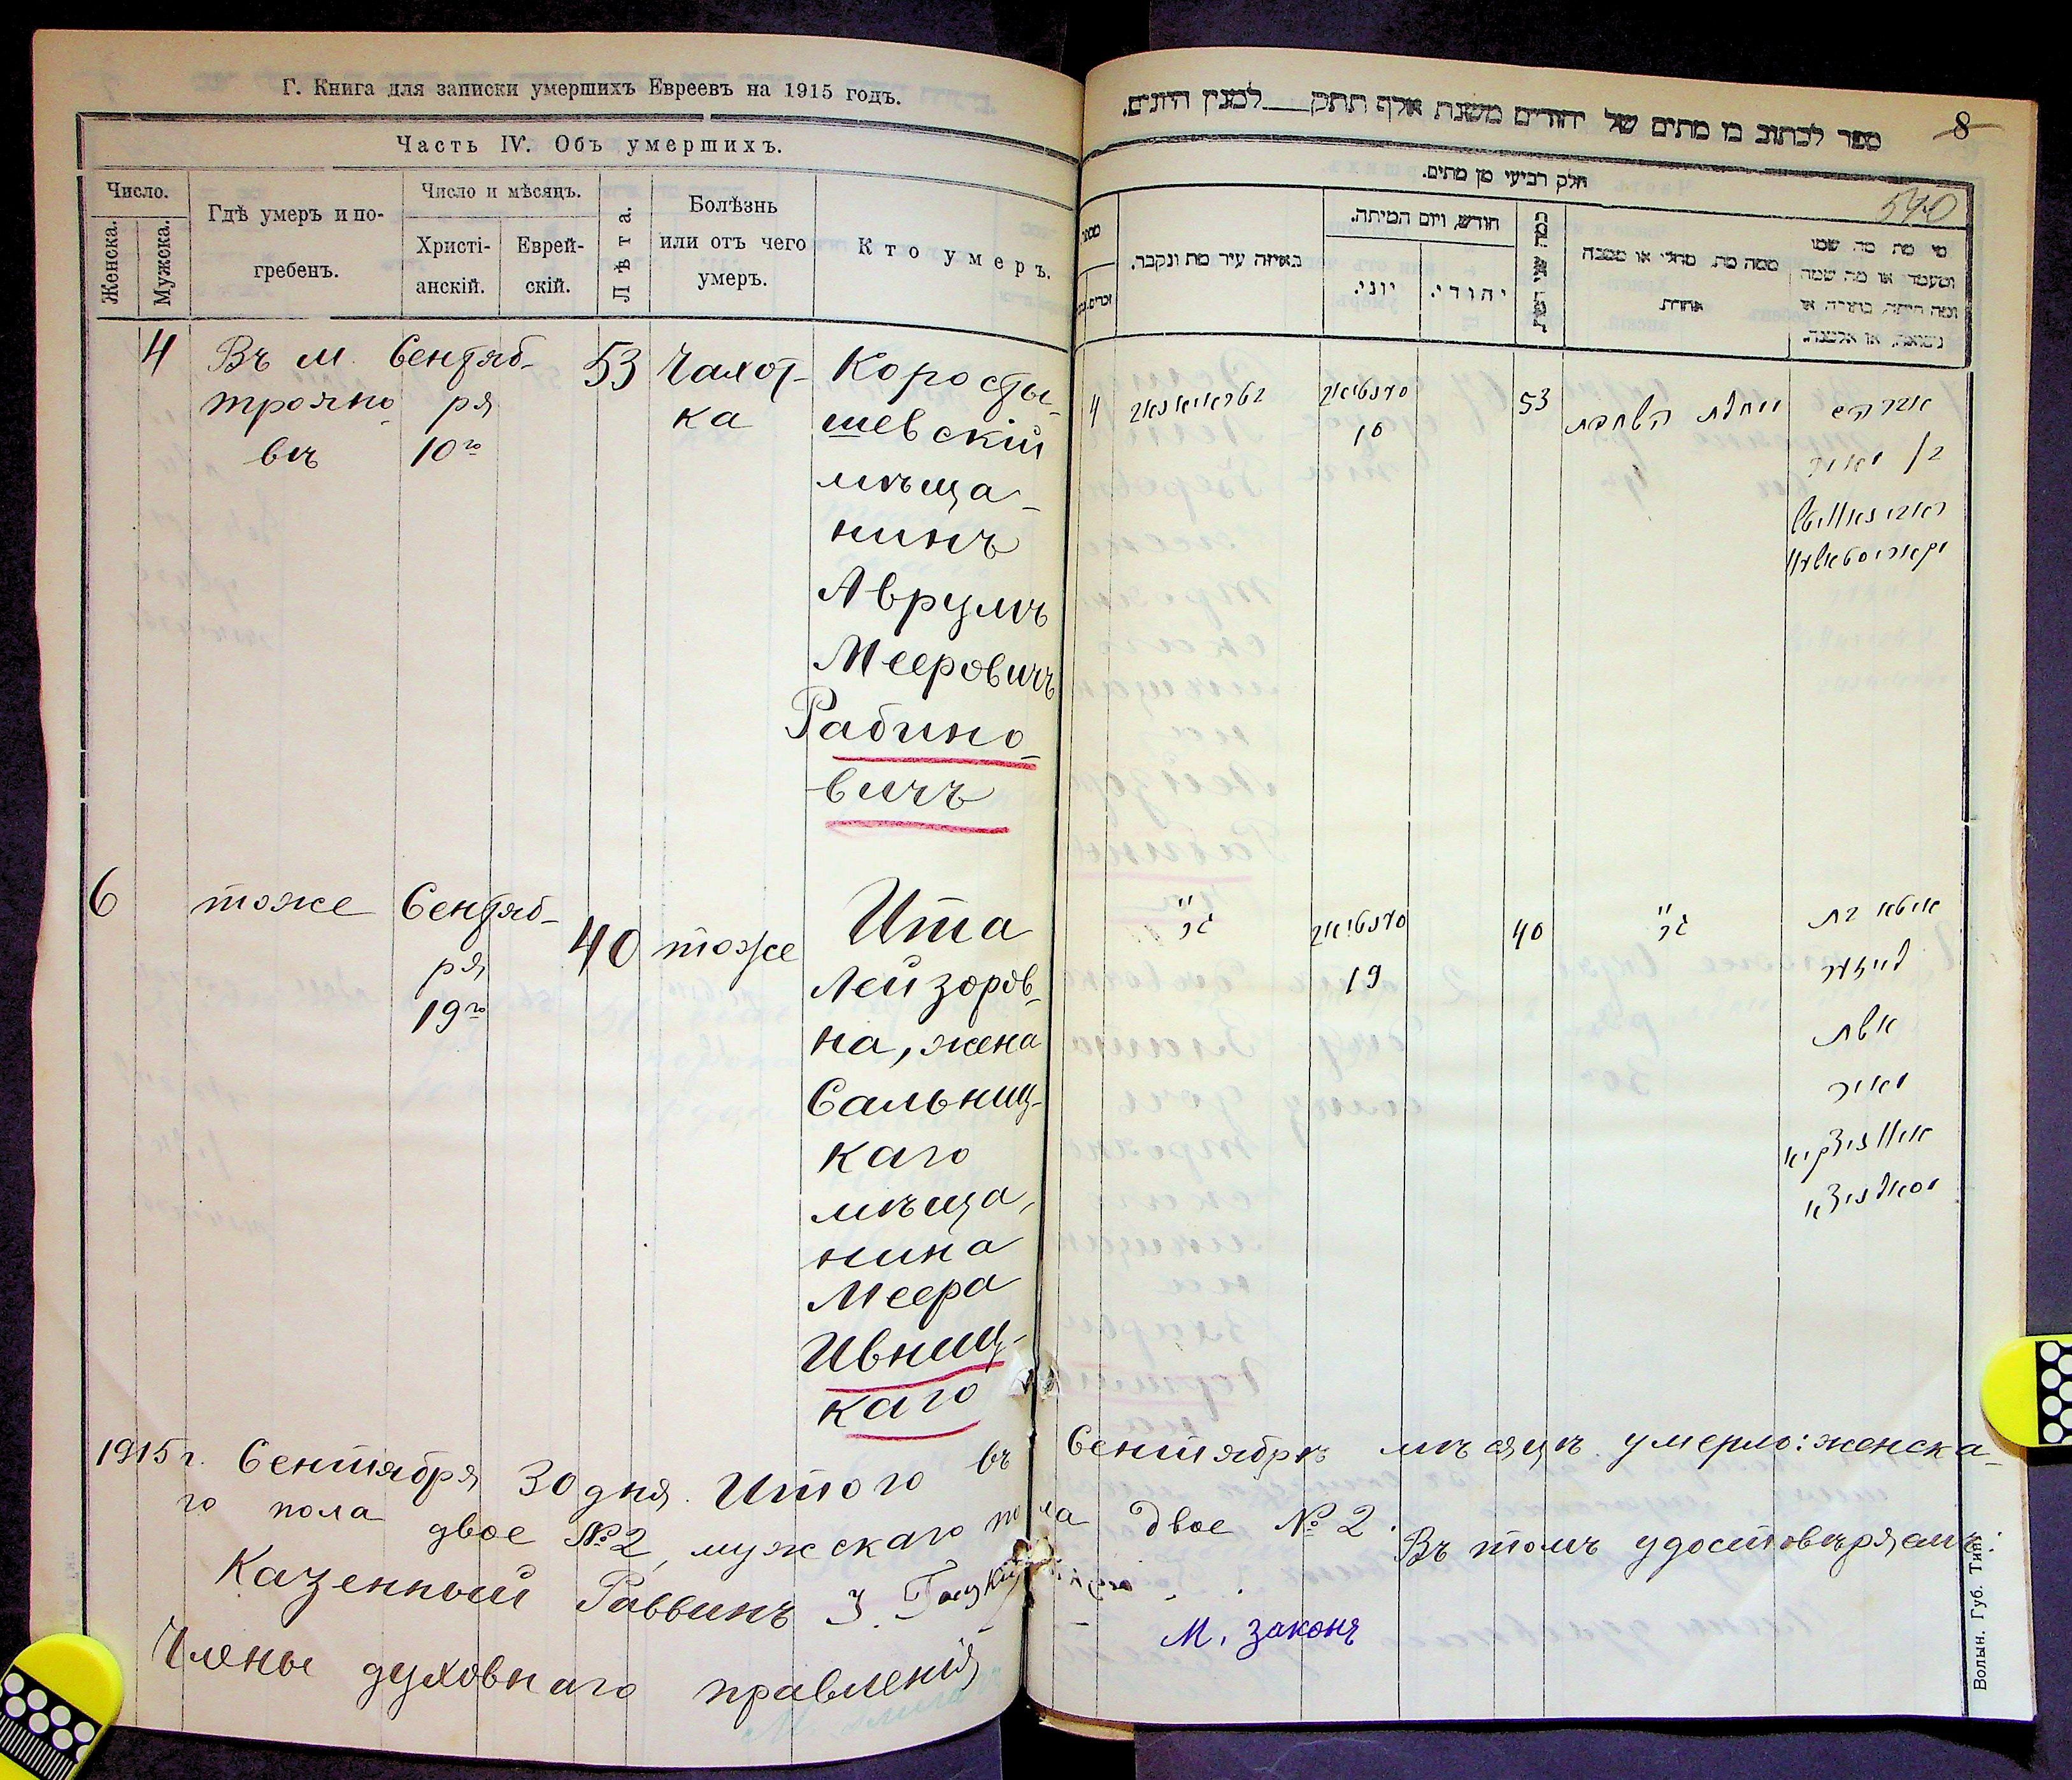 Г. Книга для записки умершихъ Евреевъ на 1915 годъ.
Часть IV. Объ умершихъ.
Число.
Женска.
Мужска.
Гдѣ умеръ и по-
гребенъ.
Число и мѣсяцъ.
Христі-
анскій.
Еврей-
скій.
Лѣта.
Болѣзнь
или отъ чего
умеръ.
Кто умеръ.
4
Въ м.
трояно
вѣ
Сентяб-
ря
10го
53
Чахот-
ка
Коросты-
шевскій
мѣща-
нинъ
Аврумъ
Мееровичъ
Рабино-
вичъ
6
тоже
Сентяб-
ря
19го
40
тоже
Ита
Лейзоров-
на, жена
Сальниц-
каго
мѣща-
нина
Меера
Ивниц-
каго
8
540
ספר לכתוב בו מתים של יהודים משנת אלף תתק לכמנין היונים.
חלק רביעי מן מתים.
באיזה עיר מת ונקבר.
חודש, ויום המיתה.
יוני.
יהודי.
ממה מת. מחלי או מסבה
אחרת
מי מת מה שמו
ומעמדו או מה שמה
4
10
53
אברהם
ב/ מאיר
ראבינאוויטש
19
40
איטא בת
לייזער
אשת
מאיר
1915 г. Сентября 30 дня. Итого въ Сентябрѣ мѣсяцѣ умерло: женска-
го пола двое № 2, мужскаго пола двое № 2. Въ томъ удостовѣряемъ:
Казенный Раввинъ З.
Члены духовнаго правленія
М. Законъ
Волын. Губ. Тип.